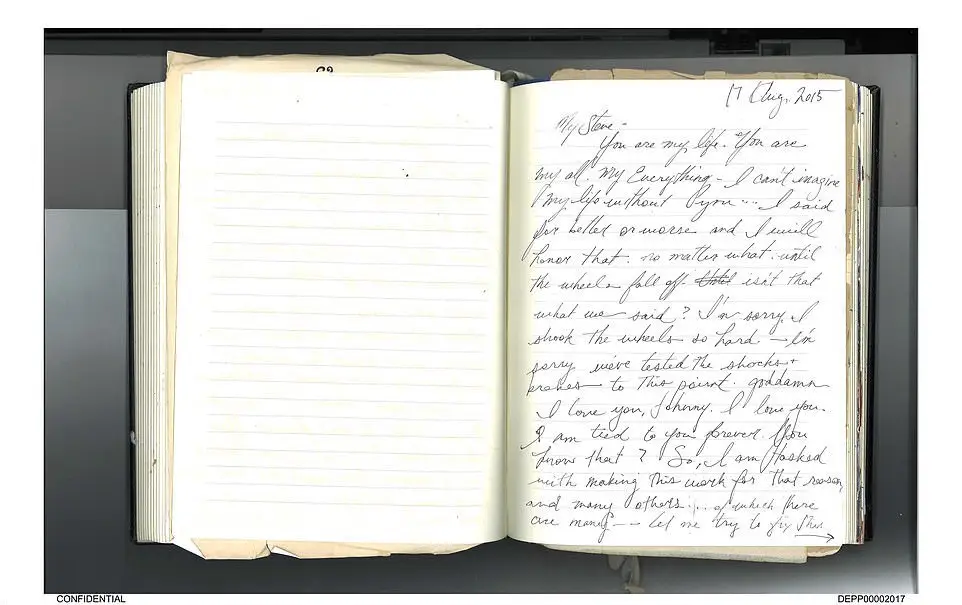 17 Aug. 2015
My Steve -
You are my life. You are
my all. My Everything - I can't imagine
my life without you... I said
for better or worse and I will
honor that. no matter what. until
the wheels fall off. Until isn't that
what we said? I'm sorry I
shook the wheels so hard — I'm
sorry we've tested the shocks +
brakes to this point. goddamn
I love you, Johnny. I love you.
I am tied to you forever. You
know that? So, I am tasked
with making this work for that reason
and many others... of which there
are many — let me try to fix this →
CONFIDENTIAL
DEPP00002017